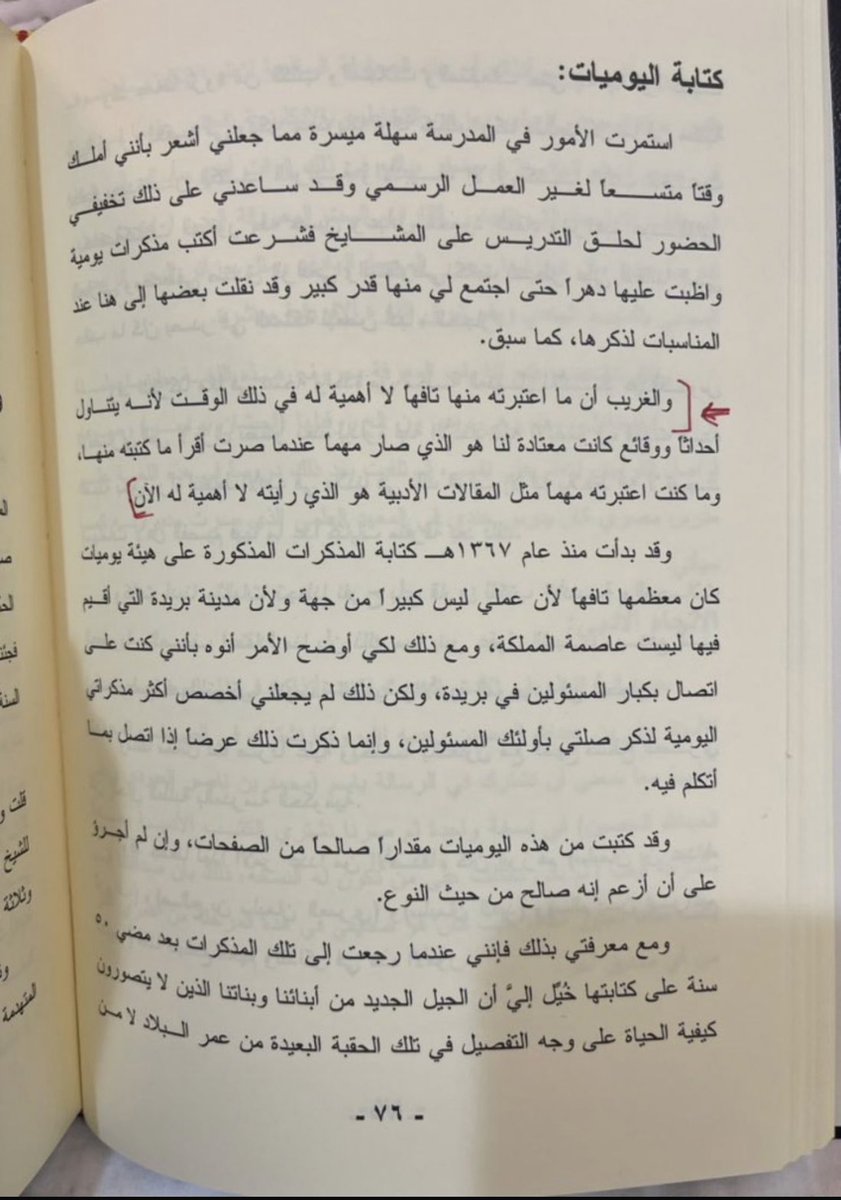 كتابة اليوميات:
استمرت الأمور في المدرسة سهلة ميسرة مما جعلني أشعر بأنني أملك
وقتاً متسعاً لغير العمل الرسمي وقد ساعدني على ذلك تخفيفي
الحضور لحلق التدريس على المشايخ فشرعت أكتب مذكرات يومية
واظبت عليها دهراً حتى اجتمع لي منها قدر كبير وقد نقلت بعضها إلى هنا عند
المناسبات لذكرها، كما سبق.
والغريب أن ما اعتبرته منها تافهاً لا أهمية له في ذلك الوقت لأنه يتناول
أحداثاً ووقائع كانت معتادة لنا هو الذي صار مهماً عندما صرت أقرأ ما كتبته منها،
وما كنت اعتبرته مهماً مثل المقالات الأدبية هو الذي رأيته لا أهمية له الآن
وقد بدأت منذ عام ١٣٦٧هـ كتابة المذكرات المذكورة على هيئة يوميات
كان معظمها تافهاً لأن عملي ليس كبيراً من جهة ولأن مدينة بريدة التي أقيم
فيها ليست عاصمة المملكة، ومع ذلك لكي أوضح الأمر أنوه بأنني كنت على
اتصال بكبار المسئولين في بريدة، ولكن ذلك لم يجعلني أخصص أكثر مذكراتي
اليومية لذكر صلتي بأولئك المسئولين، وإنما ذكرت ذلك عرضاً إذا اتصل بما
أتكلم فيه.
وقد كتبت من هذه اليوميات مقداراً صالحاً من الصفحات، وإن لم أجرؤ
على أن أزعم إنه صالح من حيث النوع.
ومع معرفتي بذلك فإنني عندما رجعت إلى تلك المذكرات بعد مضي ٥٠
سنة على كتابتها خُيِّل إليَّ أن الجيل الجديد من أبنائنا وبناتنا الذين لا يتصورون
كيفية الحياة على وجه التفصيل في تلك الحقبة البعيدة من عمر البلاد لا من
- ٧٦ -
قلت و
للشيخ
وثلاثة
المتهدمة